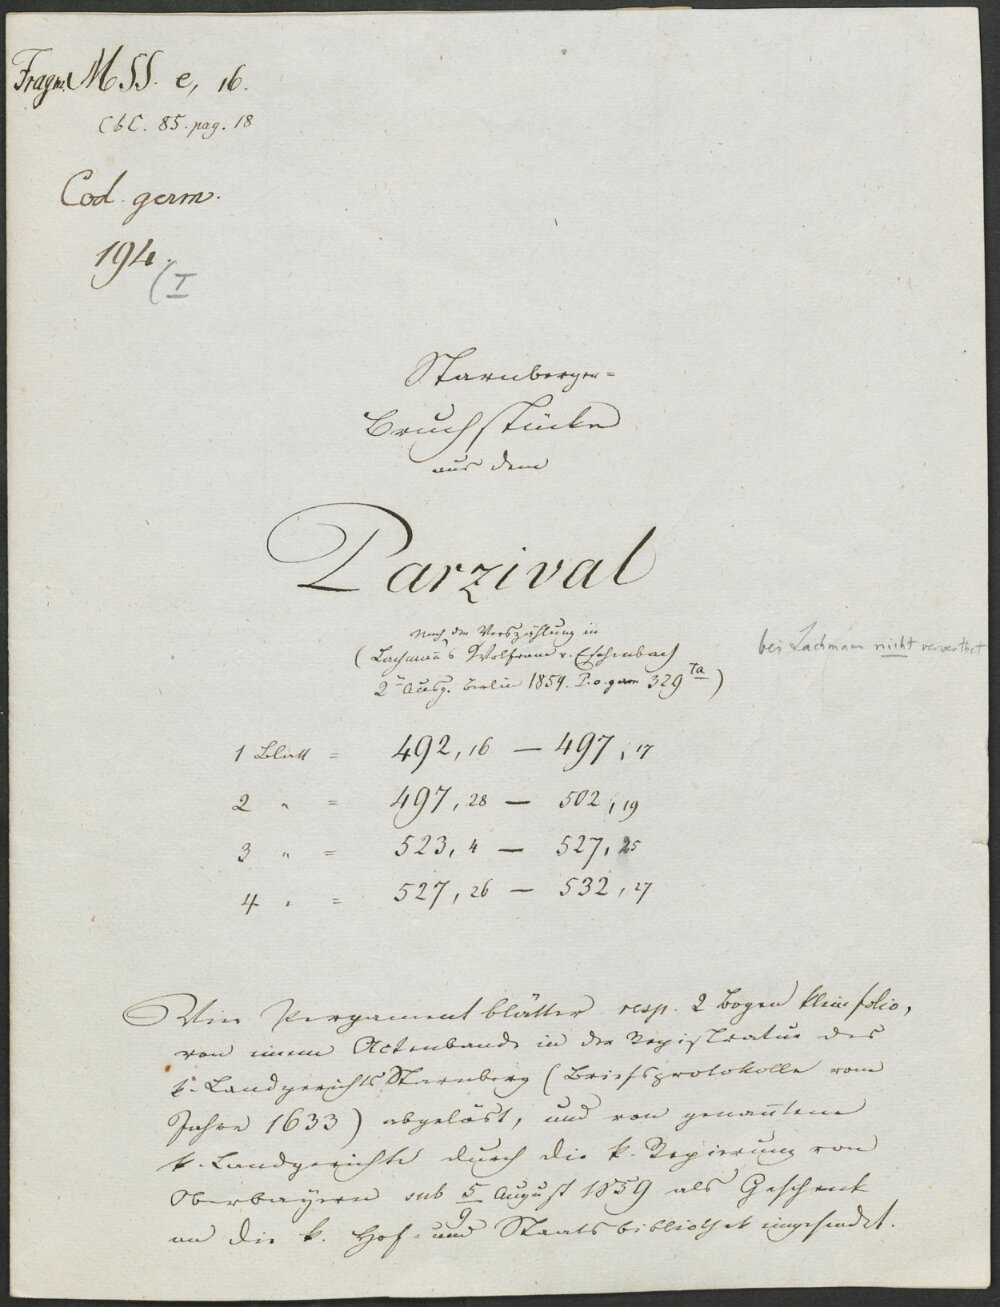 Fragm. MSS. e, 16.
CbC. 85. pag. 18
Cod. germ.
194.
(I
Starnberger=
Bruchstücke
aus dem
Parzival
Nach der Verszählung in
(Lachmann's Wolfram v. Eschenbach
2te Ausg. Berlin 1854. P.o.germ 329 ta)
bei Lachmann nicht verwerthet
1 Blatt = 492,16 — 497,17
2 " = 497,28 — 502,19
3 " = 523,4 — 527,25
4 " = 527,26 — 532,27
Vier Pergamentblätter resp. 2 Bogen klein folio,
von einem Actenbande in der Registratur des
k. Landgerichts Starnberg (Briefsprotokolle vom
Jahre 1633) abgelöst, und von genan̄tem
k. Landgerichte durch die k. Regierung von
Oberbayern sub 5/9 August 1859 als Geschenk
an die k. Hof- und Staatsbibliothek eingesendet.